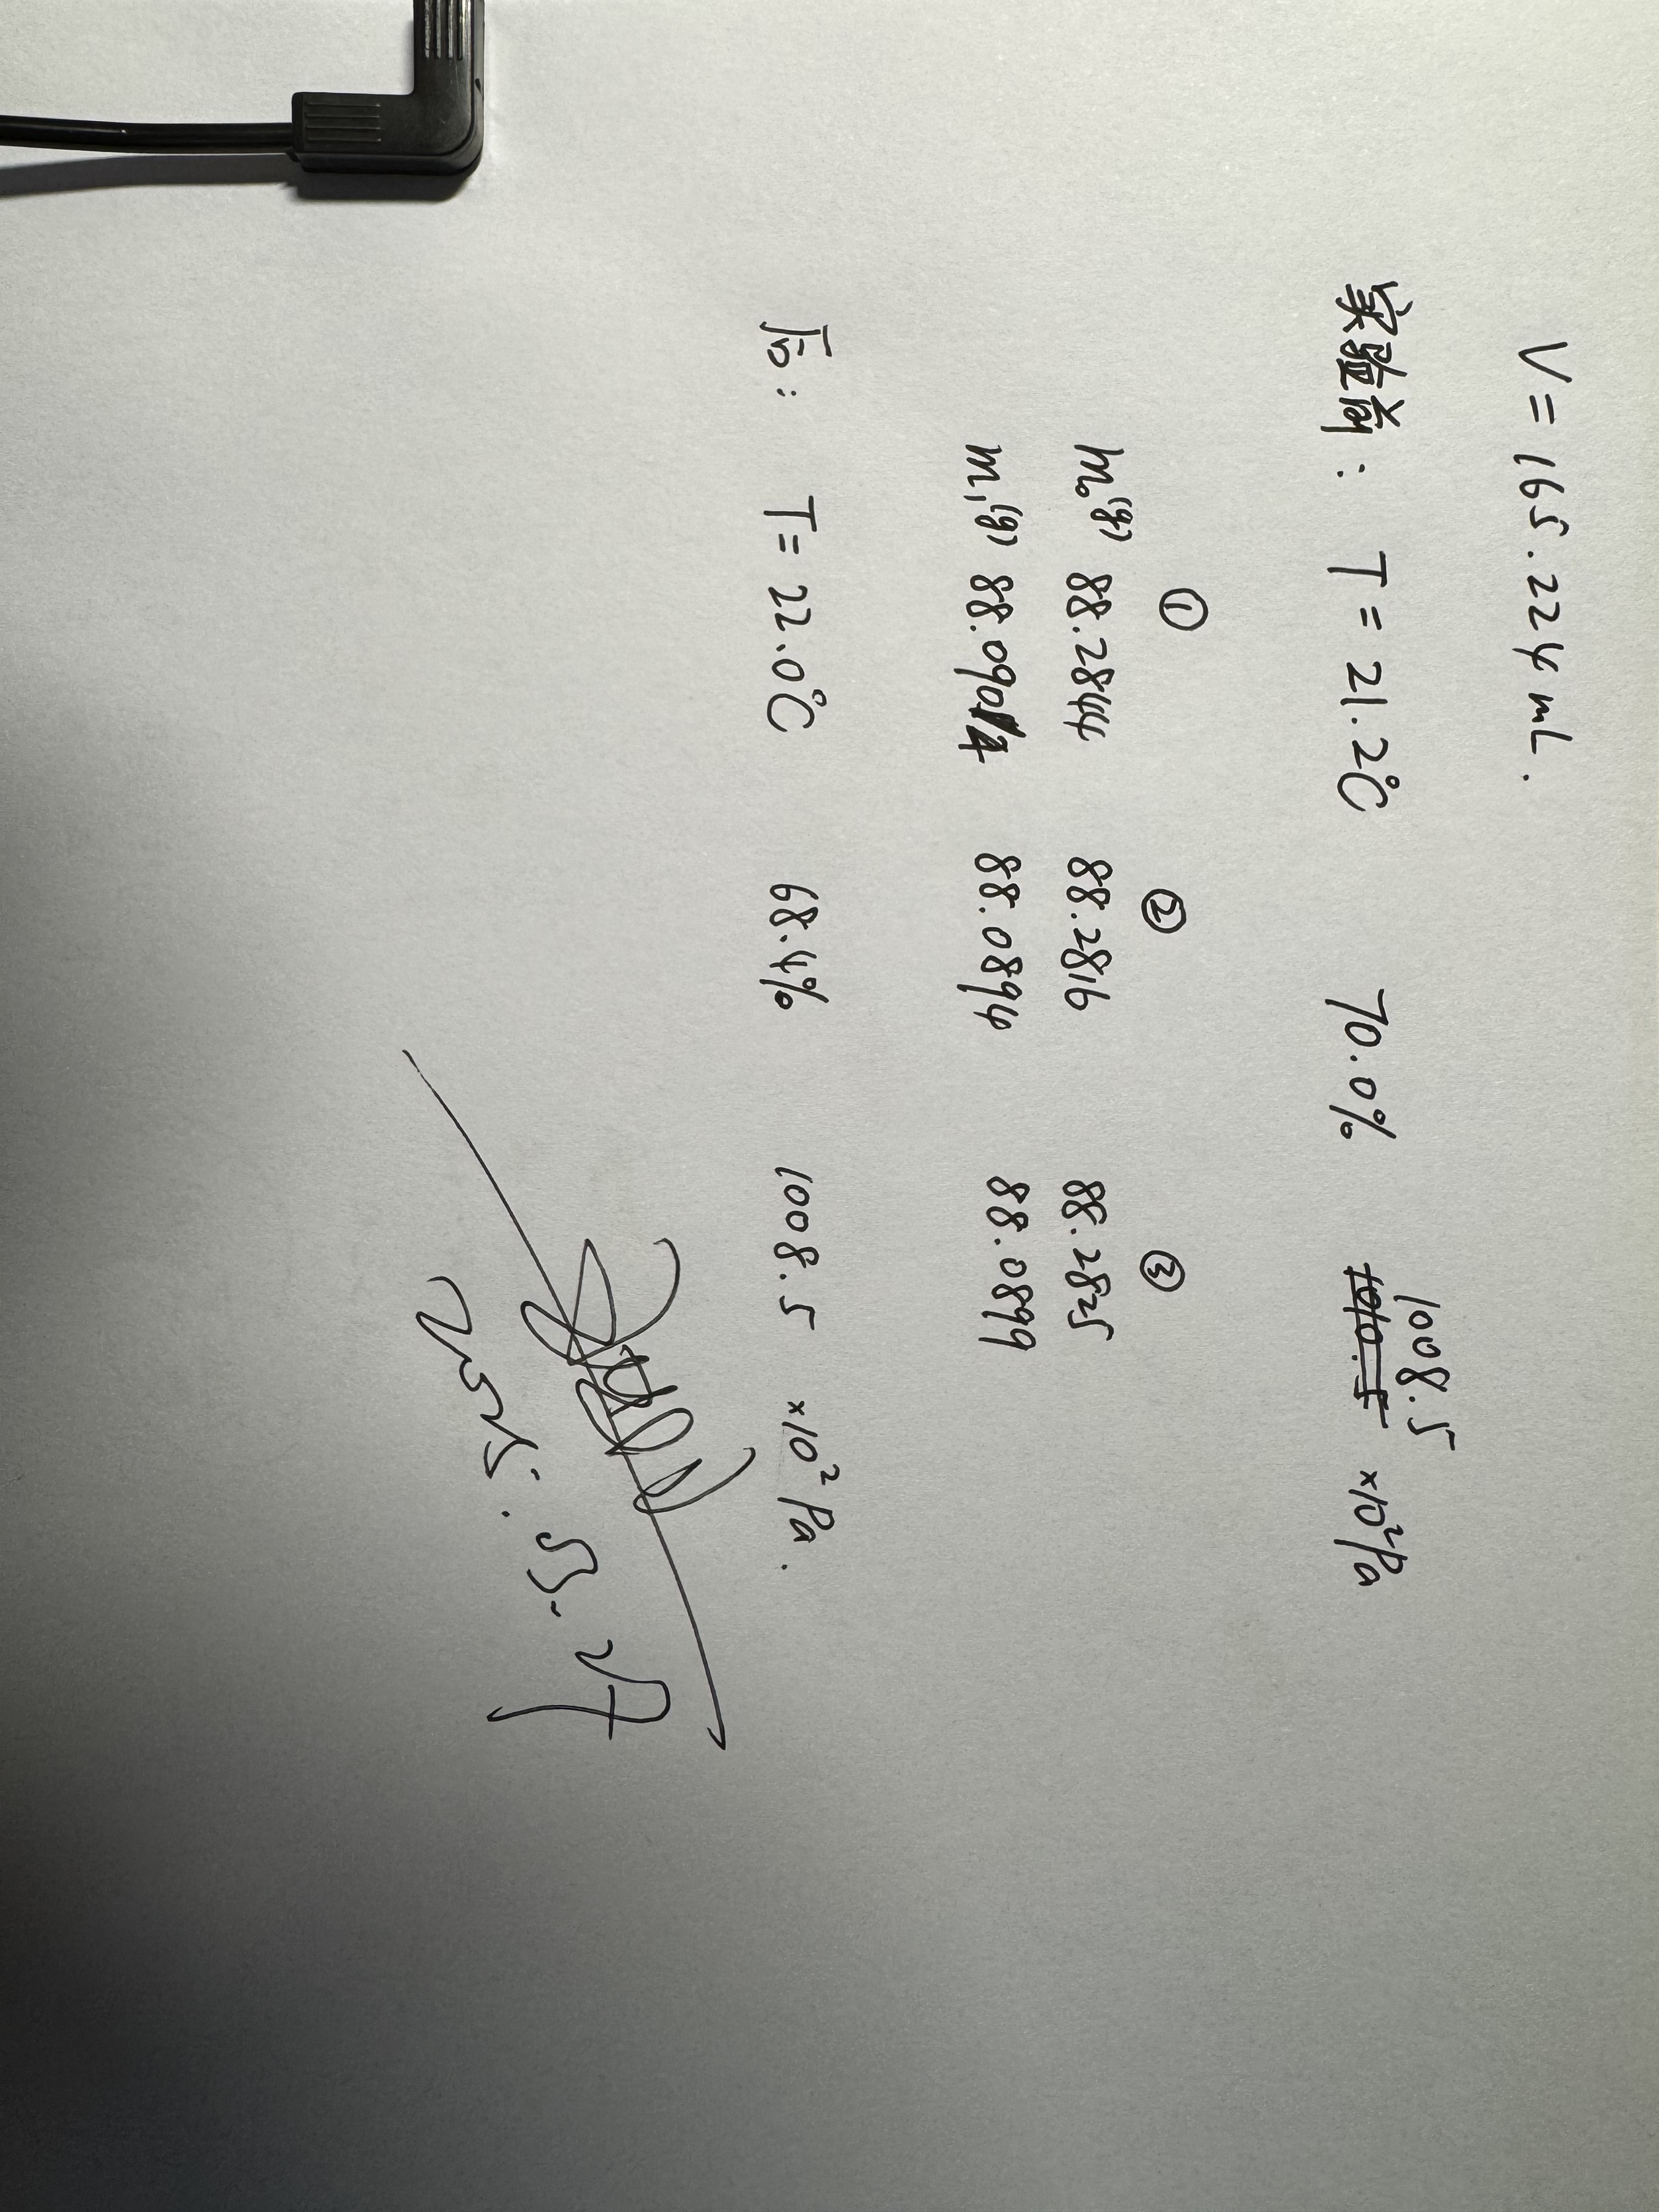 V = 165.224 mL.
实验前: T = 21.2℃ 70.0% 1008.5 ×10²Pa
① ② ③
m₀(g) 88.2844 88.2816 88.2825
m₁(g) 88.090 88.0894 88.0899
后: T = 22.0℃ 68.4% 1008.5 ×10²Pa.